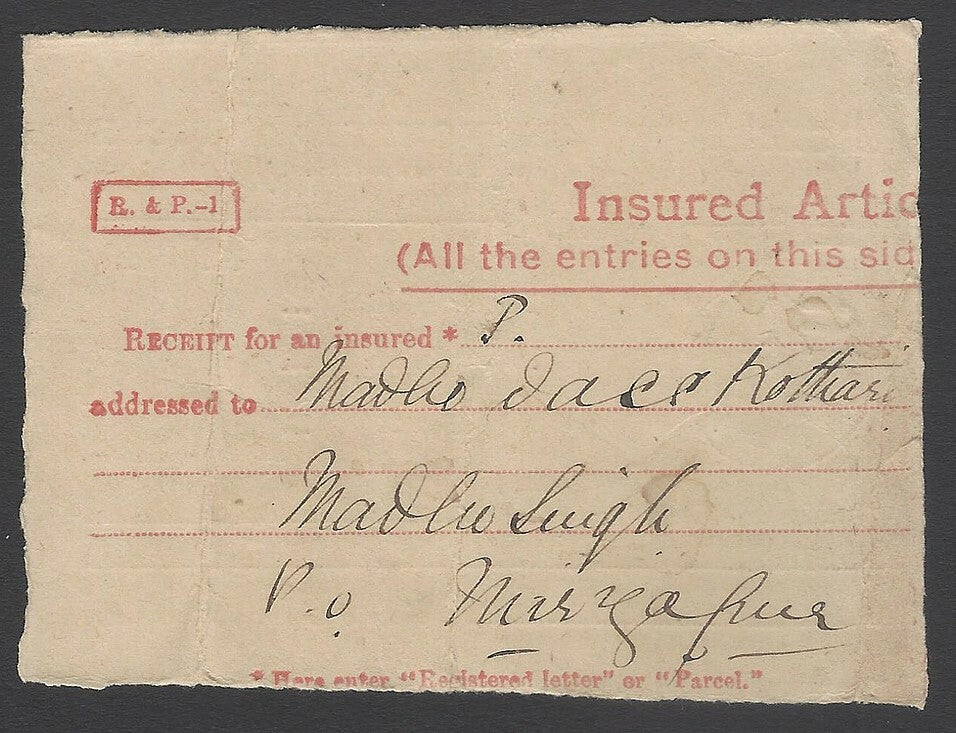 R. & P.-1
Insured Artic
(All the entries on this sid
RECEIPT for an insured * P.
addressed to Madho Dass Kothari
Madho Singh
P.o Mirzapur
* Here enter "Registered letter" or "Parcel."